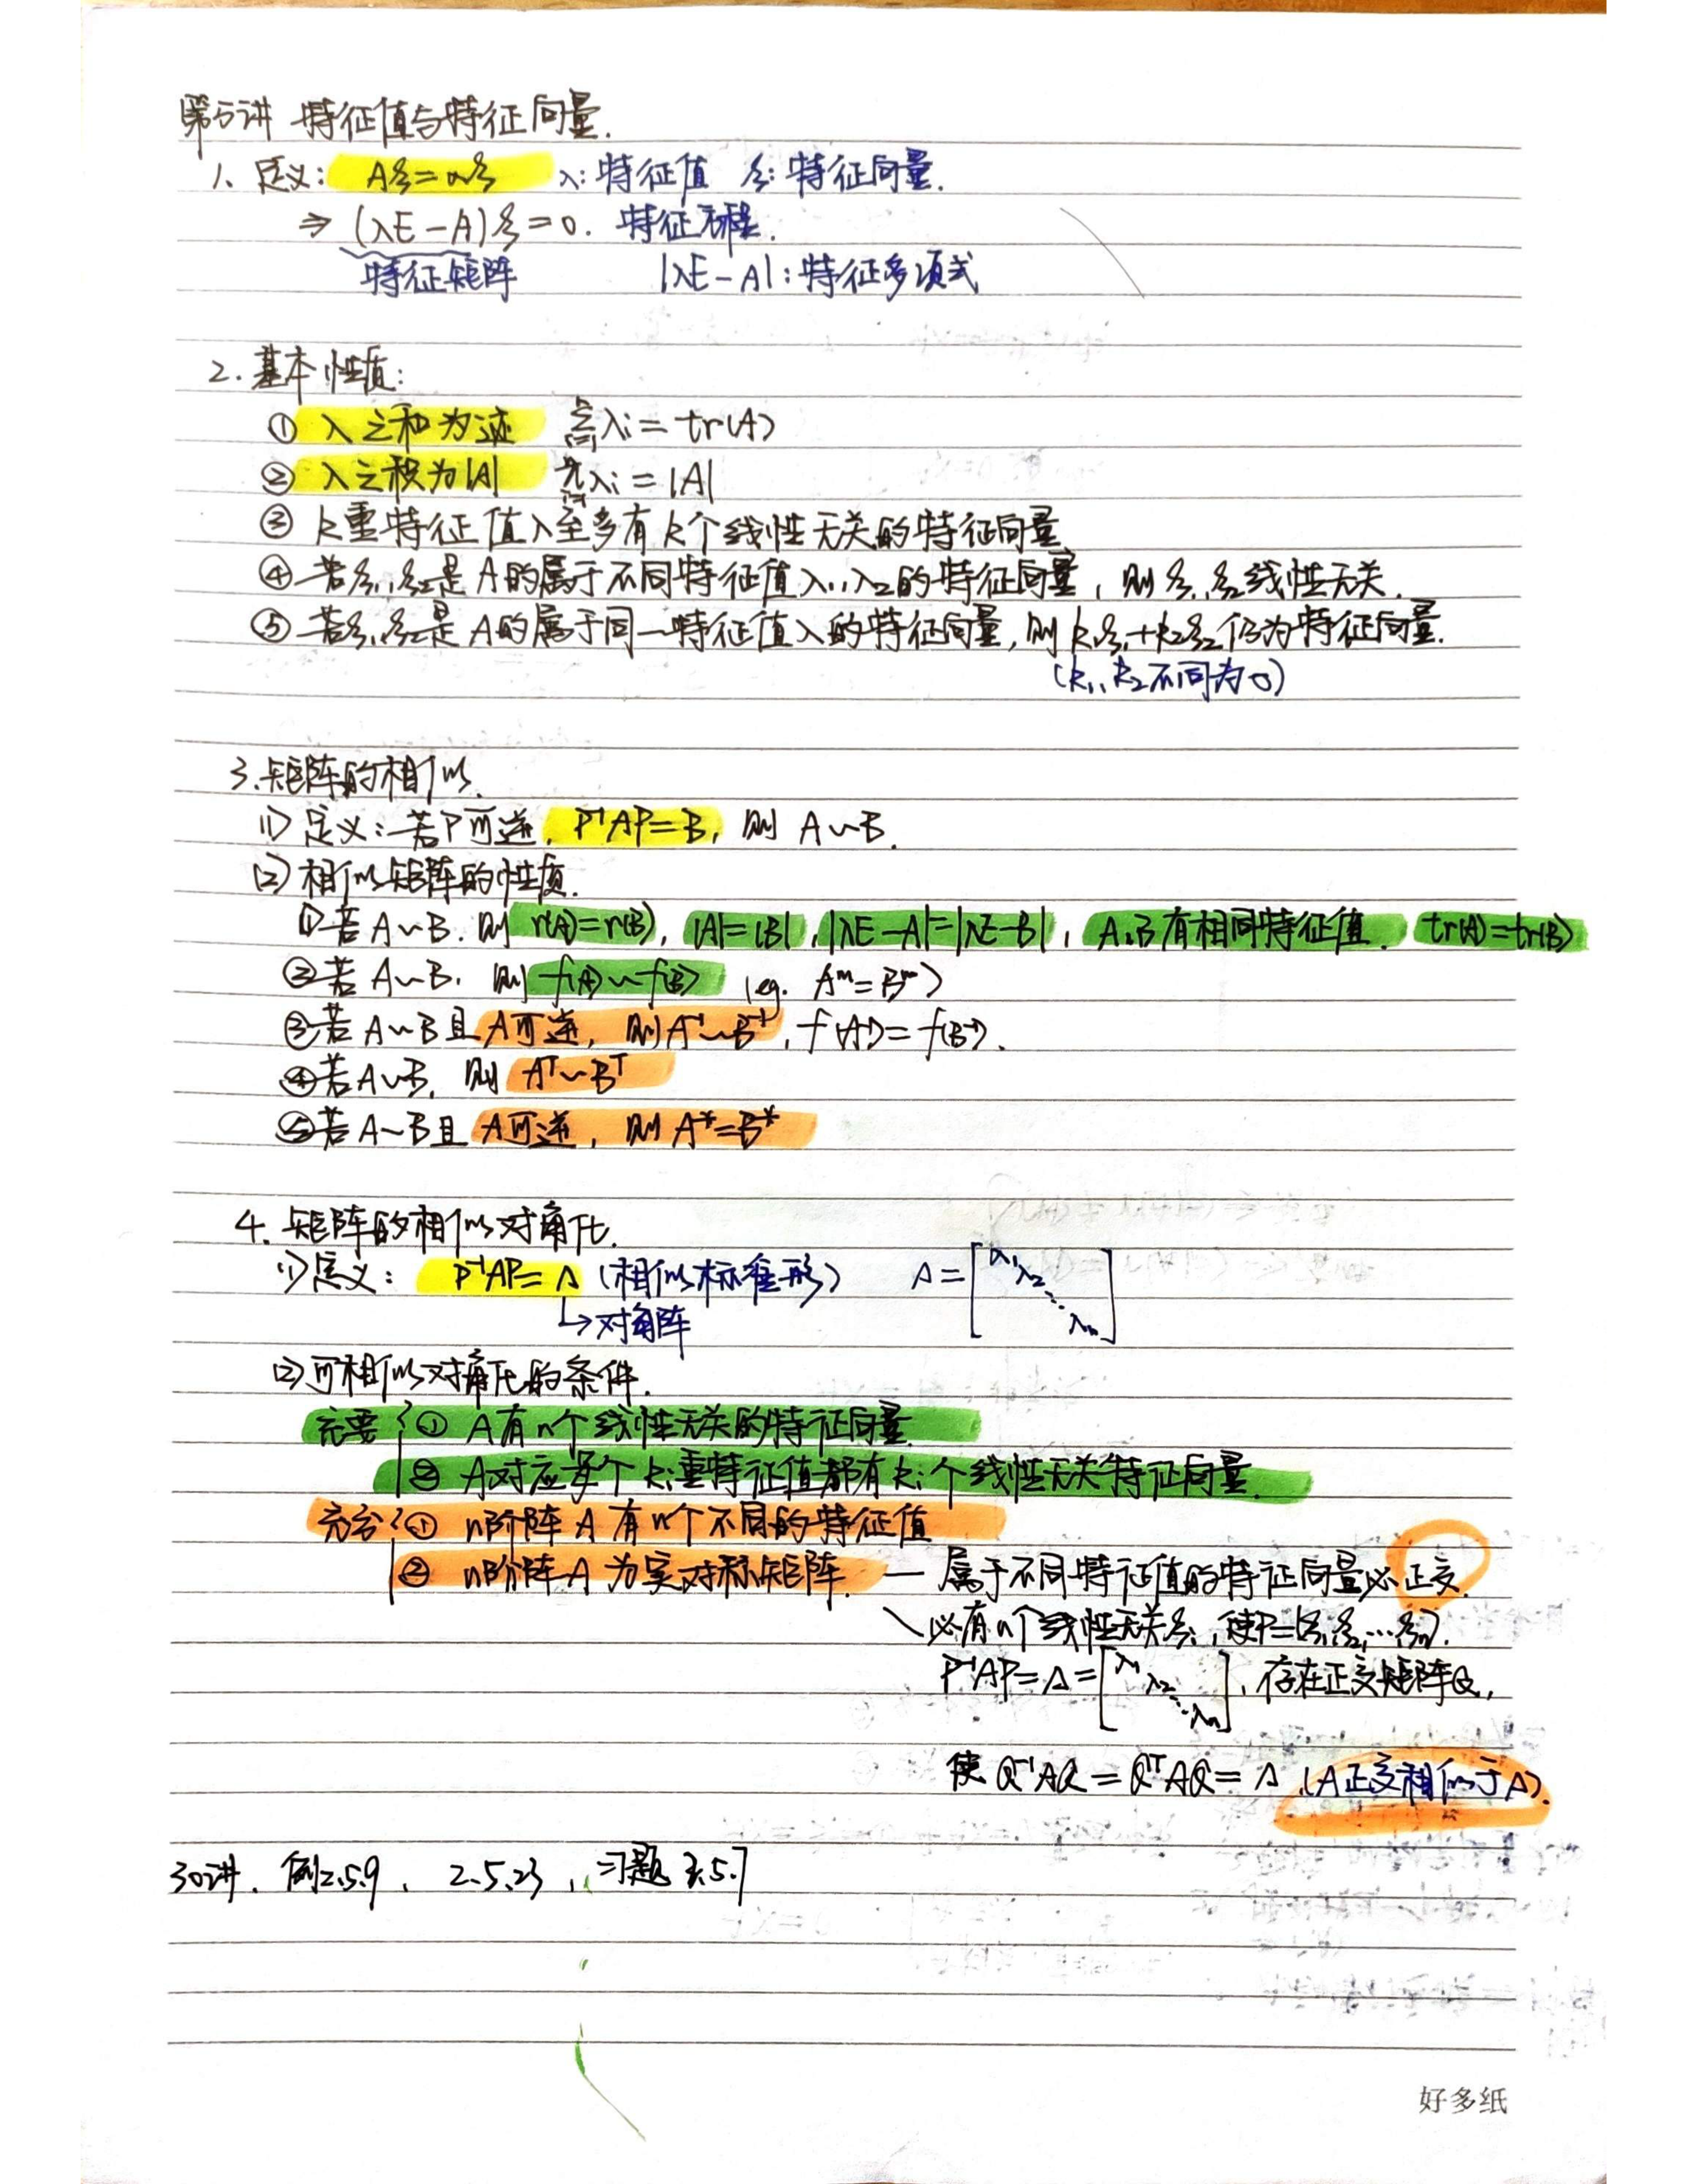 第五讲 特征值与特征向量.
1、定义: Aξ=λξ λ:特征值 ξ:特征向量.
⇒ (λE-A)ξ=0. 特征方程.
特征矩阵 |λE-A|:特征多项式
2.基本性质:
① λ之和为迹 ∑λi=tr(A)
② λ之积为|A| πλi=|A|
③ k重特征值λ至多有k个线性无关的特征向量
④ 若ξ1,ξ2是A的属于不同特征值λ1,λ2的特征向量,则ξ1,ξ2线性无关.
⑤ 若ξ1,ξ2是A的属于同一特征值λ的特征向量,则k1ξ1+k2ξ2仍为特征向量.
(k1、k2不同为0)
3.矩阵的相似.
(1) 定义:若P可逆,P⁻¹AP=B,则 A~B.
(2) 相似矩阵的性质.
①若A~B.则r(A)=r(B), |A|=|B|,|λE-A|=|λE-B|,A,B有相同特征值.tr(A)=tr(B)
②若A~B,则f(A)~f(B) (eg. Aᵐ=Bᵐ)
③若A~B且A可逆,则A⁻¹~B⁻¹,f(A⁻¹)=f(B⁻¹).
④若A~B,则Aᵀ~Bᵀ
⑤若A~B且A可逆,则A*=B*
4.矩阵的相似对角化.
(1)定义: P⁻¹AP=Λ(相似标准形) Λ=[λ1 λ2 ⋱ λn]
↳对角阵
(2)可相似对角化的条件.
充要{① A有n个线性无关的特征向量
② A对应每个ki重特征值都有ki个线性无关特征向量.
充分{① n阶阵A有n个不同的特征值
② n阶阵A为实对称矩阵.— 属于不同特征值的特征向量必正交.
\必有n个线性无关ξi,使P=[ξ1,ξ2,…ξn].
P⁻¹AP=Λ=[λ1 λ2 ⋱ λn],存在正交矩阵Q,
使Q⁻¹AQ=QᵀAQ=Λ.(A正交相似于Λ).
30讲.例2.5.9、2.5.23,习题2.5.7
好多纸